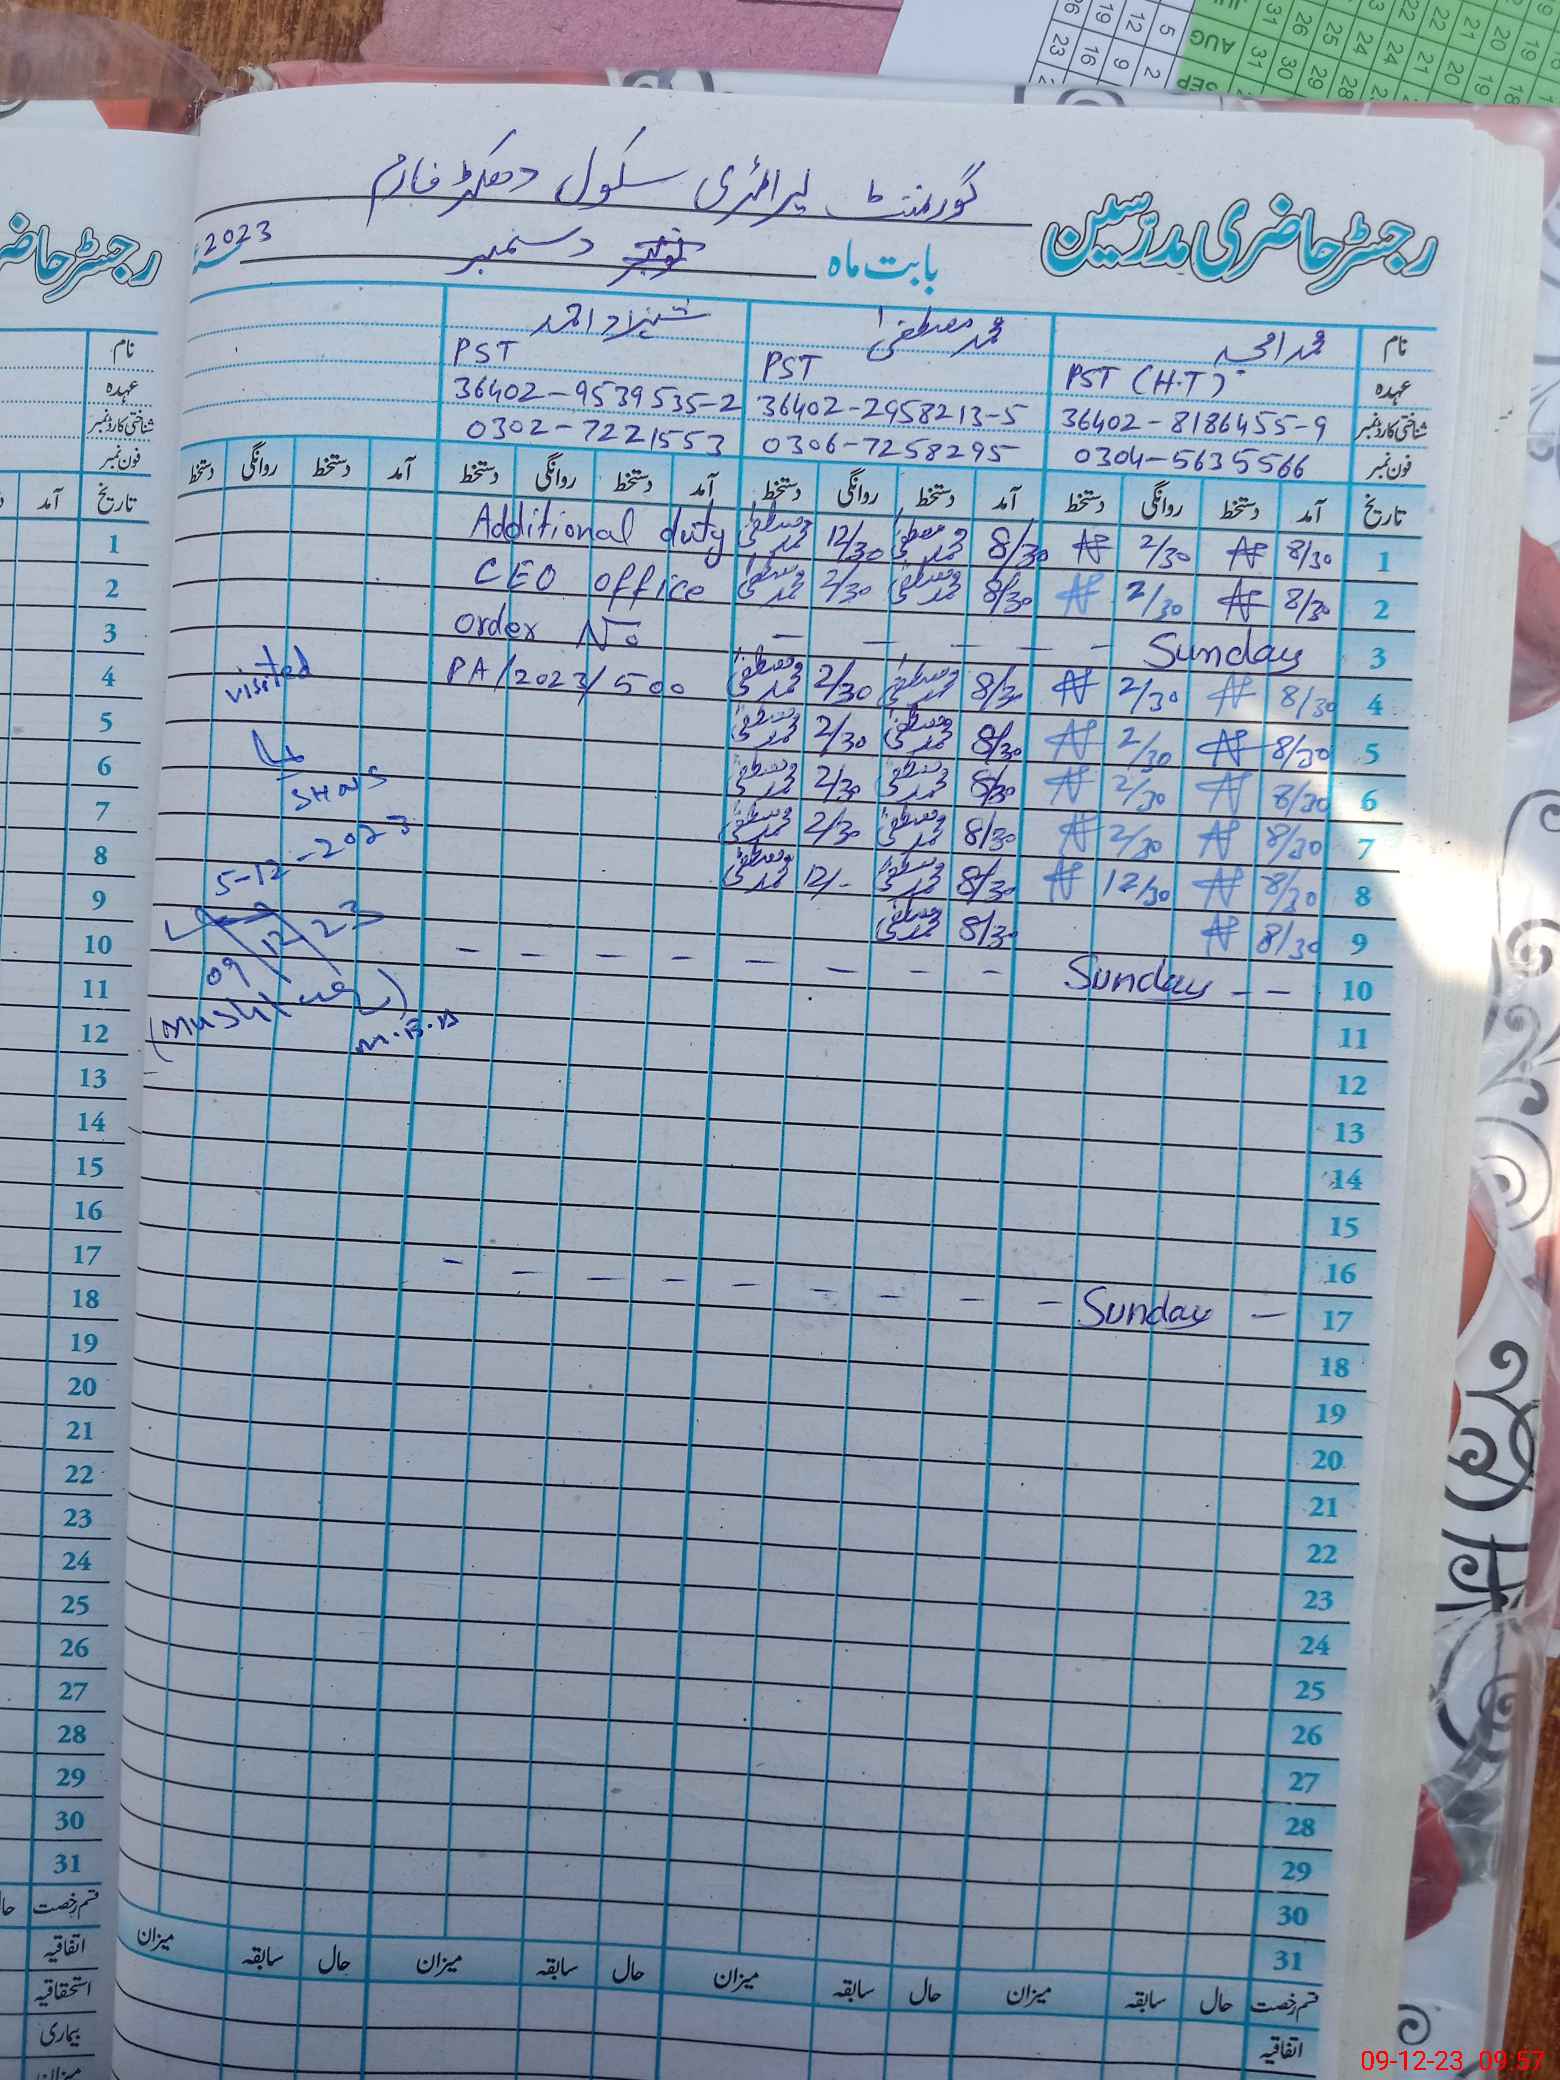 گورنمنٹ پرائمری سکول دھکڑ فارم
رجسٹر حاضری مدرسین
بابت ماہ دسمبر 2023
نام محمد امجد محمد مصطفیٰ شہزاد احمد
عہدہ PST (H.T) PST PST
شناختی کارڈ نمبر 36402-8186455-9 36402-2958213-5 36402-9539535-2
فون نمبر 0304-5635566 0306-7258295 0302-7221553
تاریخ آمد دستخط روانگی دستخط آمد دستخط روانگی دستخط آمد دستخط روانگی دستخط آمد دستخط روانگی دستخط
1 8/30 2/30 8/30 محمد مصطفیٰ 12/30 محمد مصطفیٰ Additional duty
2 8/30 2/30 8/30 محمد مصطفیٰ 2/30 محمد مصطفیٰ CEO office
3 Sunday - - - - - order No
4 8/30 2/30 8/30 محمد مصطفیٰ 2/30 محمد مصطفیٰ PA/2023/500 visited
5 8/30 2/30 8/30 محمد مصطفیٰ 2/30 محمد مصطفیٰ
6 8/30 2/30 8/30 محمد مصطفیٰ 2/30 محمد مصطفیٰ
7 8/30 2/30 8/30 محمد مصطفیٰ 2/30 محمد مصطفیٰ
8 8/30 12/30 8/30 محمد مصطفیٰ 12/- محمد مصطفیٰ 5-12-2023
9 8/30 8/30 محمد مصطفیٰ
09/12/23
10 - - Sunday - - - - - - - -
M.B.A
11
12
13
14
15
16
17 - Sunday - - - - - - - - -
18
19
20
21
22
23
24
25
26
27
28
29
30
31
قسم رخصت حال سابقہ میزان حال سابقہ میزان حال سابقہ میزان حال سابقہ میزان
اتفاقیہ
رجسٹر حاضر
نام
عہدہ
شناختی کارڈ نمبر
فون نمبر
تاریخ آمد
1
2
3
4
5
6
7
8
9
10
11
12
13
14
15
16
17
18
19
20
21
22
23
24
25
26
27
28
29
30
31
قسم رخصت
اتفاقیہ
استحقاقیہ
بیماری
میزان
AUG
SEP
09-12-23 09:57